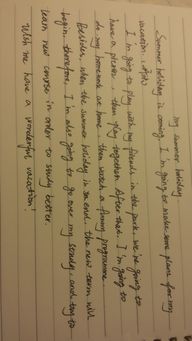 my summer holiday
Summer holiday is coming, I'm going to make some plans for my
vacation.
I'm going to play with my friends in the park, we're going to
have a picnic, then play together. After that, I'm going to
do my homework at home, then watch a funny programme
Besides, when the summer holiday is on end, the new term will
begin, therefore, I'm also going to go over my study, and try to
learn new course in order to study better.
Wish me have a wonderful vacation!